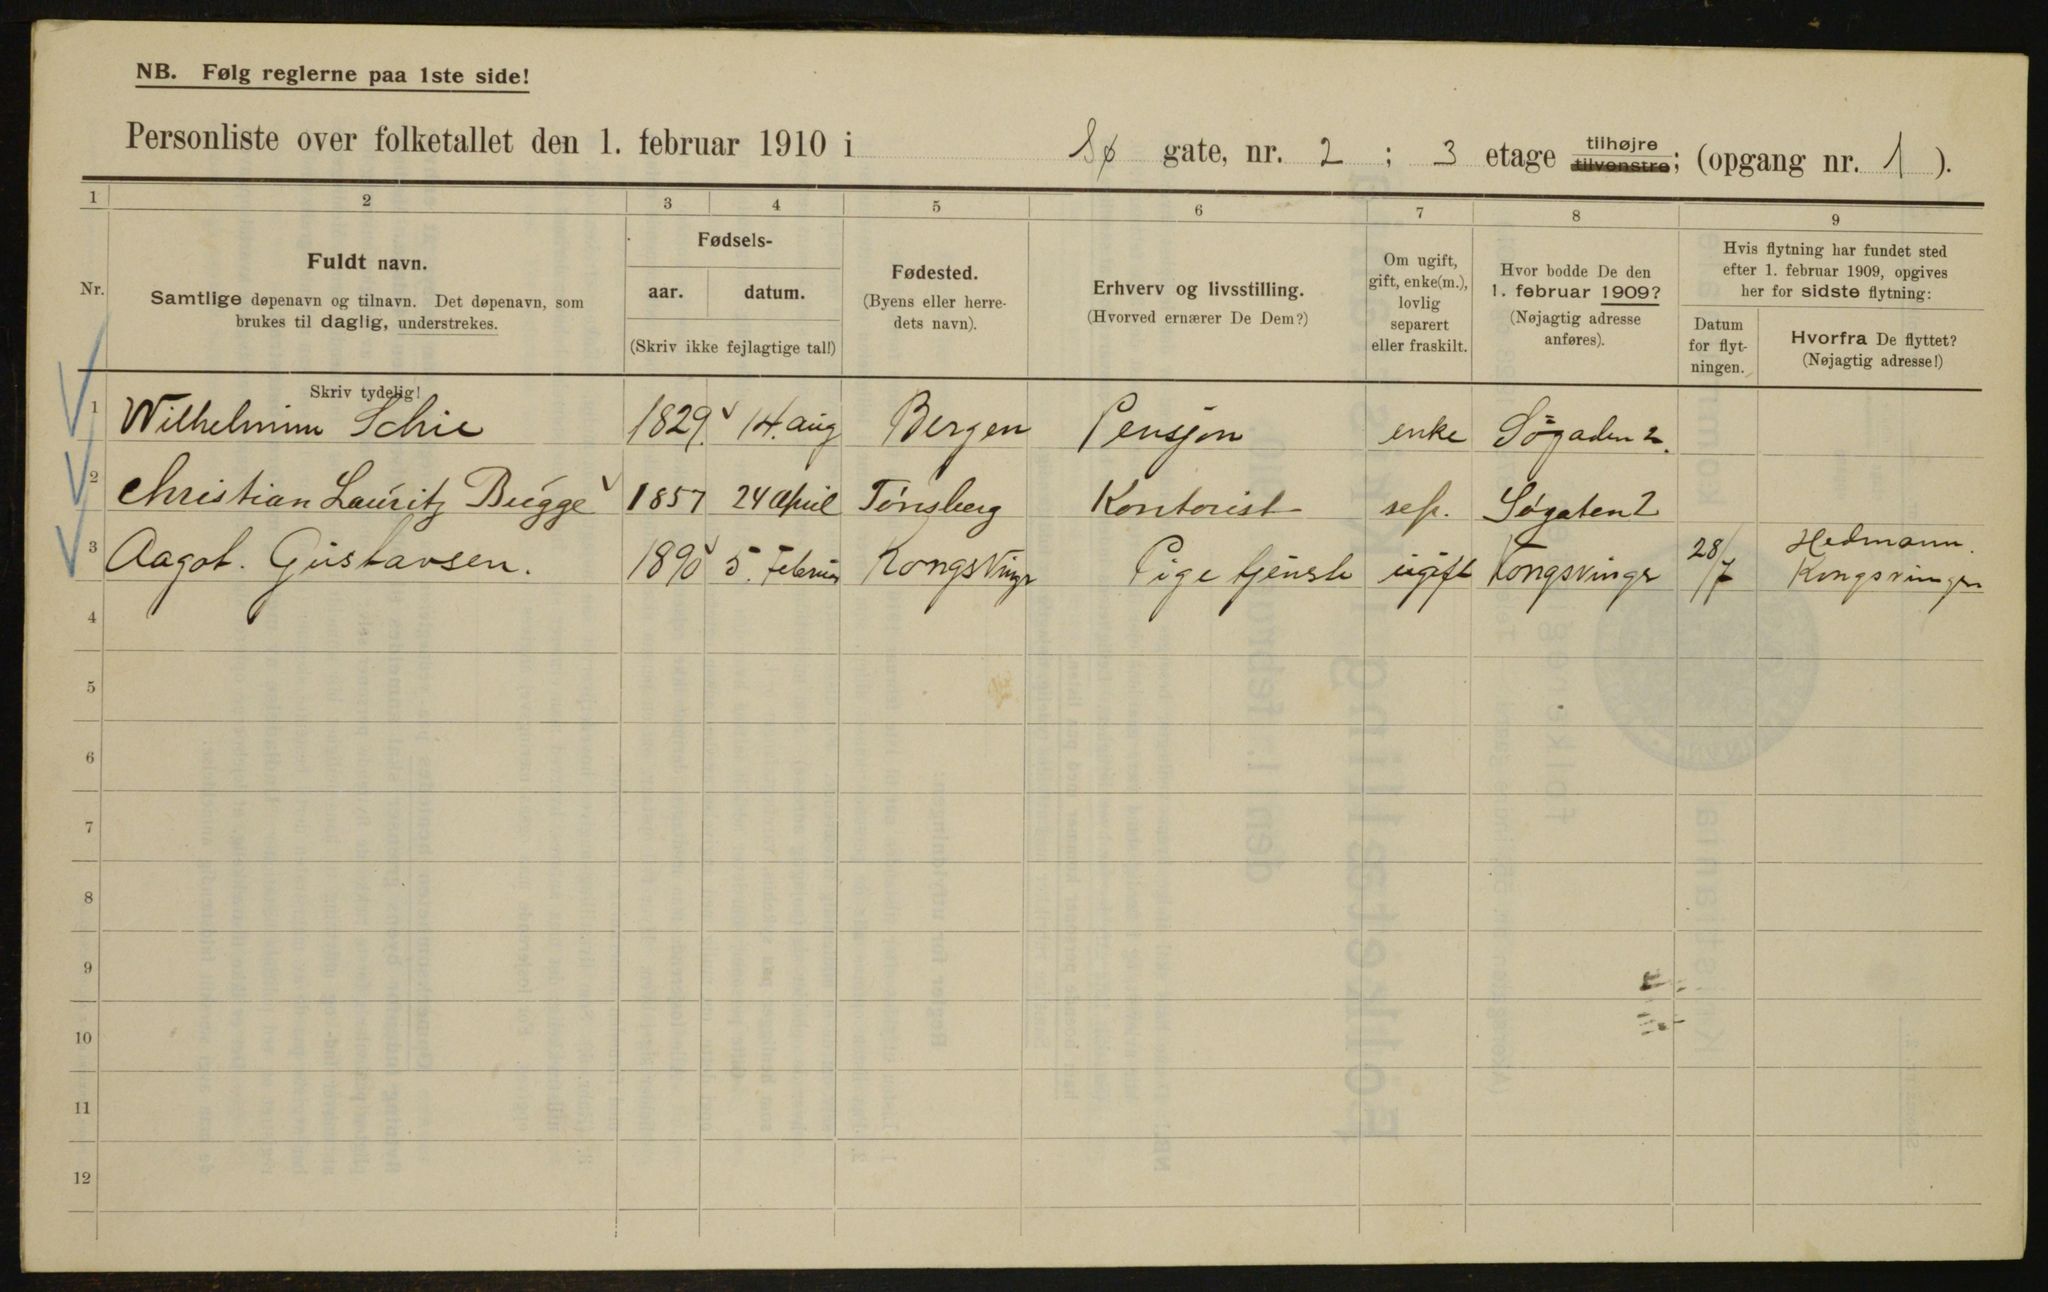 NB. Følg reglerne paa 1ste side!
Personliste over folketallet den 1. februar 1910 i Sø gate, nr. 2 ; 3 etage tilhøjre tilvenstre; (opgang nr. 1 ).
1 2 3 4 5 6 7 8 9
Nr.
Fuldt navn.
Samtlige døpenavn og tilnavn. Det døpenavn, som
brukes til daglig, understrekes.
Skriv tydelig!
Fødsels-
aar. datum.
(Skriv ikke fejlagtige tal!)
Fødested.
(Byens eller herre-
dets navn).
Erhverv og livsstilling.
(Hvorved ernærer De Dem?)
Om ugift,
gift, enke(m.),
lovlig
separert
eller fraskilt.
Hvor bodde De den
1. februar 1909?
(Nøjagtig adresse
anføres).
Hvis flytning har fundet sted
efter 1. februar 1909, opgives
her for sidste flytning:
Datum
for flyt-
ningen.
Hvorfra De flyttet?
(Nøjagtig adresse!)
1 Wilhelmine Schie 1829 14. aug Bergen Pensjon enke Søgaden 2.
2 Christian Lauritz Bugge 1857 24 april Tønsberg Kontorist sep. Søgaten 2
3 Aagot. Gustavsen. 1890 5. Februar Kongsvinger Pige tjenste ugift Kongsvinger 28/7 Hedmann. Kongsvinger
4
5
6
7
8
9
10
11
12